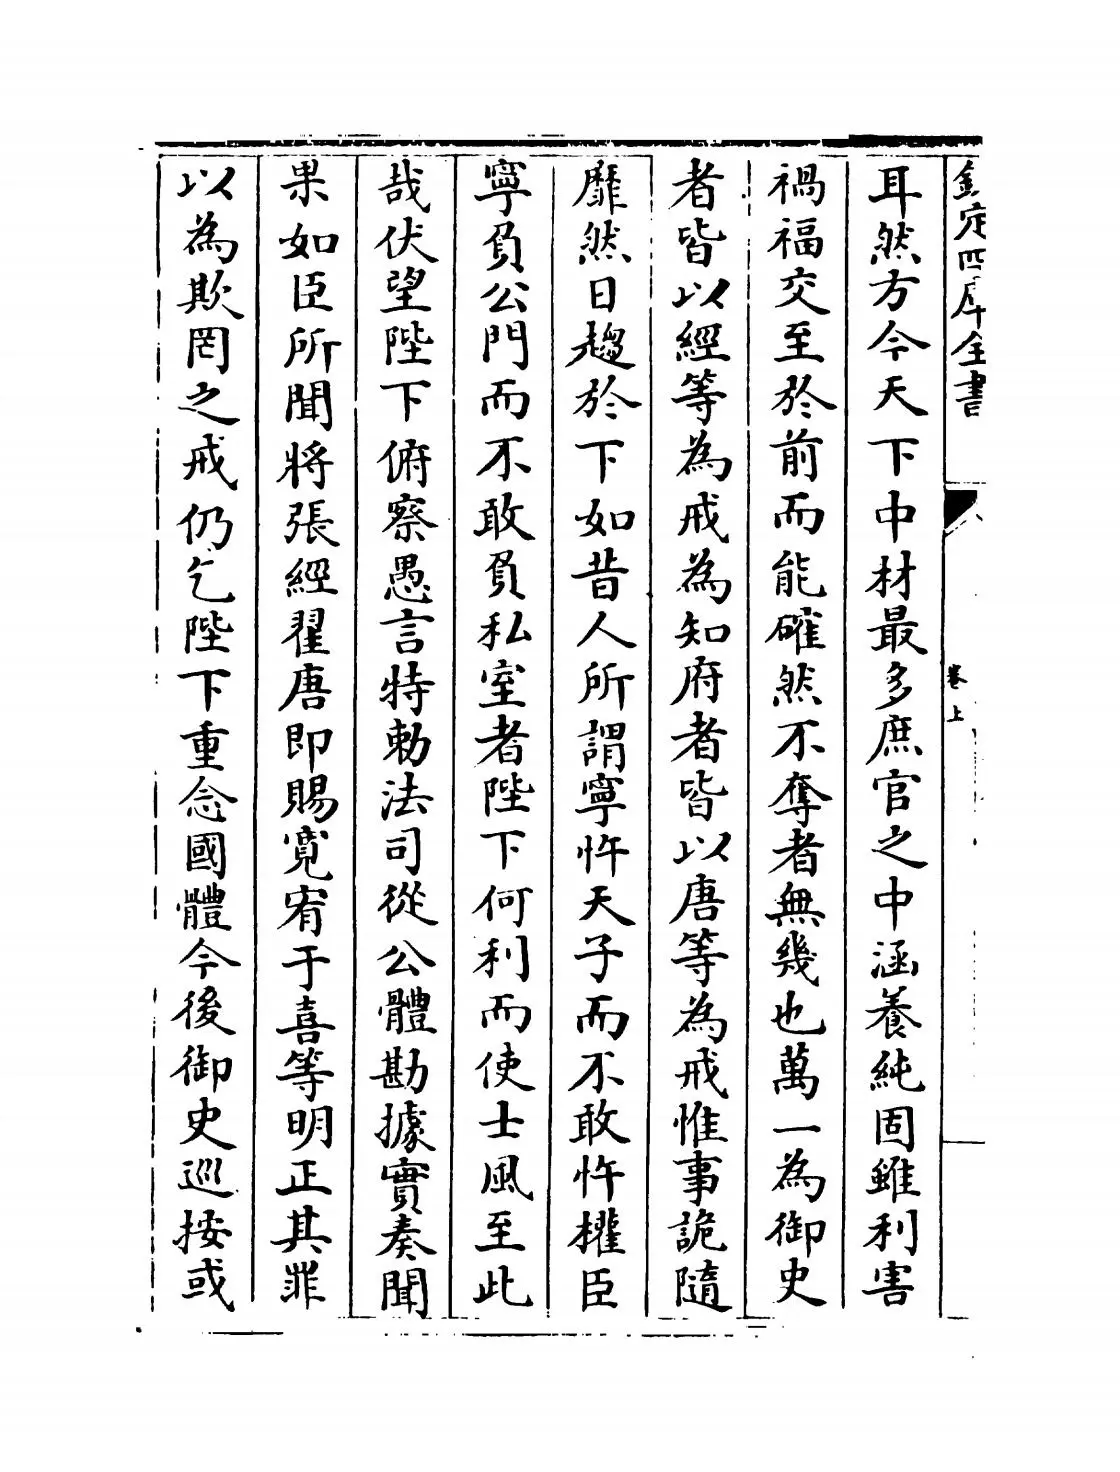 欽定四庫全書
卷上
耳然方今天下中材最多庶官之中涵養純固雖利害
禍福交至於前而能確然不奪者無幾也萬一為御史
者皆以經等為戒為知府者皆以唐等為戒惟事詭隨
靡然日趨於下如昔人所謂寧忤天子而不敢忤權臣
寧負公門而不敢負私室者陛下何利而使士風至此
哉伏望陛下俯察愚言特勅法司從公體勘據實奏聞
果如臣所聞將張經翟唐即賜寬宥于喜等明正其罪
以為欺罔之戒仍乞陛下重念國體今後御史巡按或